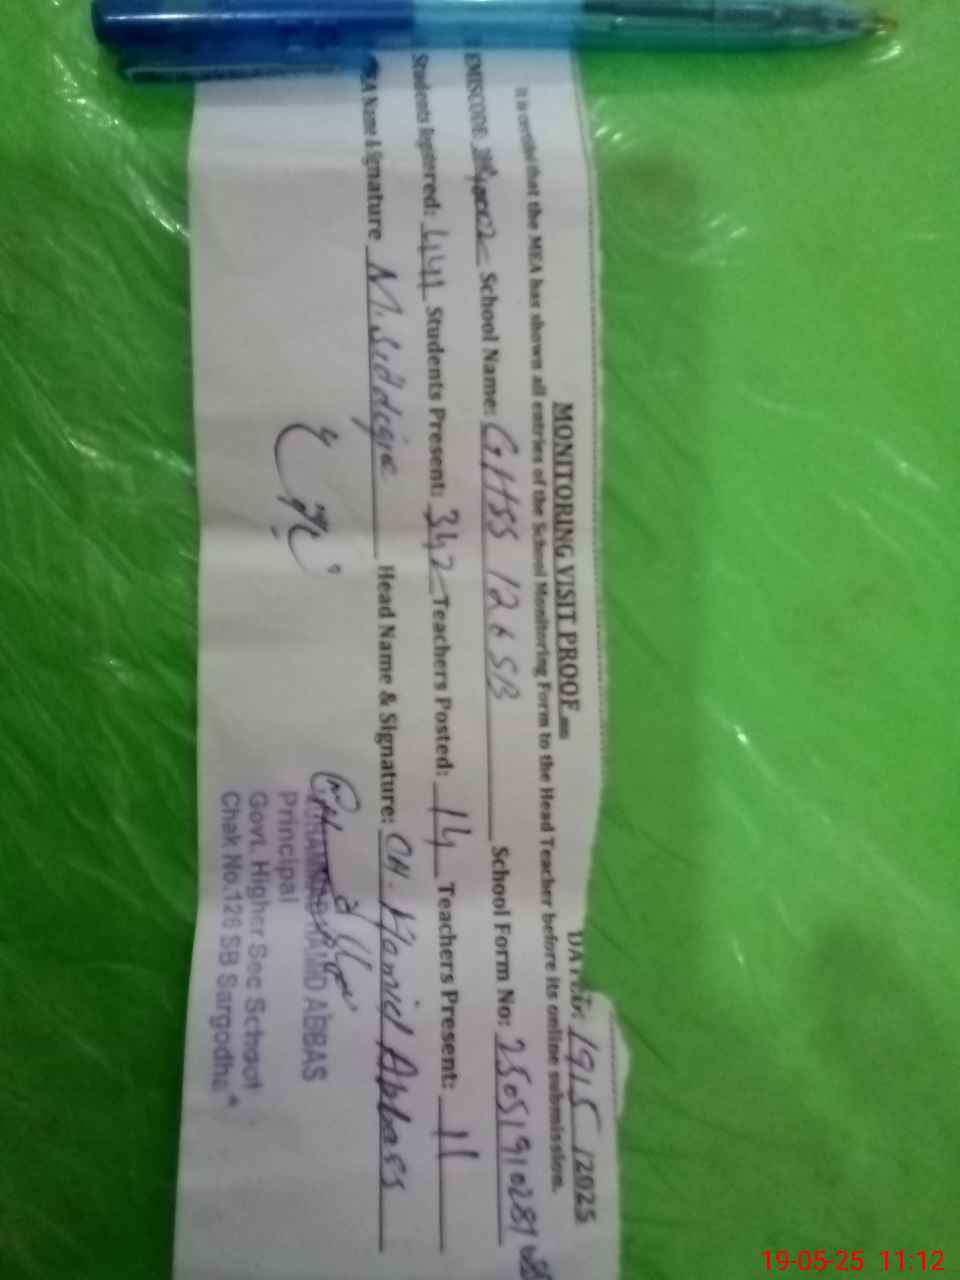 MONITORING VISIT PROOF
DATED: 19/5/2025
It is certified that the MEA has shown all entries of the School Monitoring Form to the Head Teacher before its online submission.
EMISCODE: School Name: GHSS 126 SB School Form No: 2505191028
Students Registered: 441 Students Present: 342 Teachers Posted: 14 Teachers Present: 11
MEA Name & Signature M. Siddique Head Name & Signature: CH. Hamid Abbass
HAMID ABBAS
Principal
Govt. Higher Sec School
Chak No.126 SB Sargodha
19-05-25 11:12